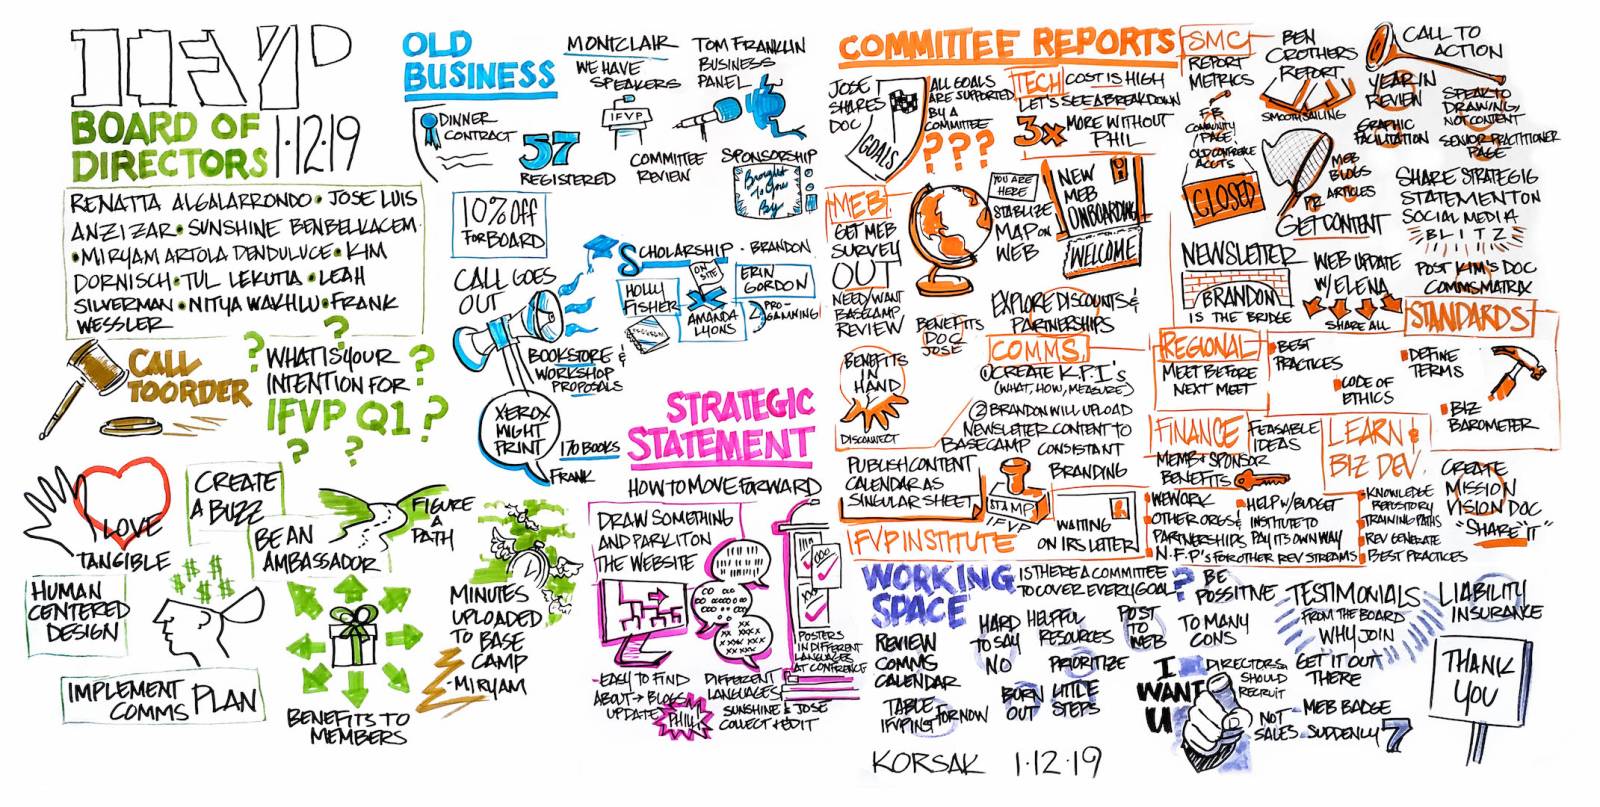 IFVP
BOARD OF
DIRECTORS
1·12·19
RENATTA ALGALARRONDO · JOSE LUIS
ANZIZAR · SUNSHINE BENBELKACEM
· MIRYAM ARTOLA DENDULUCE · KIM
DORNISCH · TUL LEKUTIA · LEAH
SILVERMAN · NITYA WAKHLU · FRANK
WESSLER
CALL
TO ORDER
WHAT IS YOUR
INTENTION FOR
IFVP Q1
? ? ? ? ? ?
LOVE
TANGIBLE
CREATE
A BUZZ
BE AN
AMBASSADOR
FIGURE
A
PATH
HUMAN
CENTERED
DESIGN
$ $ $ $ $ $
IMPLEMENT
COMMS PLAN
BENEFITS TO
MEMBERS
MINUTES
UPLOADED
TO BASE
CAMP
- MIRYAM
OLD
BUSINESS
DINNER
CONTRACT
57
REGISTERED
MONTCLAIR
WE HAVE
SPEAKERS
IFVP
COMMITTEE
REVIEW
TOM FRANKLIN
BUSINESS
PANEL
SPONSORSHIP
Brought
To You
By
10% Off
For BOARD
CALL GOES
OUT
SCHOLARSHIP · BRANDON
HOLLY
FISHER
ON
SITE
AMANDA
LYONS
ERIN
GORDON
PRO-
GAMMING
BOOKSTORE &
WORKSHOP
PROPOSALS
XEROX
MIGHT
PRINT
170 BOOKS
FRANK
STRATEGIC
STATEMENT
HOW TO MOVE FORWARD
DRAW SOMETHING
AND PARK IT ON
THE WEBSITE
POSTERS
IN DIFFERENT
LANGUAGES
AT CONFERENCE
- EASY TO FIND
ABOUT → BLOGS
UPDATE
PHIL!
DIFFERENT
LANGUAGES
SUNSHINE & JOSE
COLLECT + EDIT
COMMITTEE REPORTS
JOSE
SHARES
DOC
GOALS
ALL GOALS
ARE SUPPORTED
BY A
COMMITTEE
???
TECH
COST IS HIGH
LET'S SEE A BREAKDOWN
3x
MORE WITHOUT
PHIL
MEB
GET MEB
SURVEY
OUT
NEED/WANT
BASECAMP
REVIEW
YOU ARE
HERE
STABLIZE
MAP ON
WEB
NEW
MEB
ONBOARDING
WELCOME
EXPLORE DISCOUNTS &
PARTNERSHIPS
BENEFITS
DOC
JOSE
BENEFITS
IN
HAND
DISCONNECT
COMMS
① CREATE K.P.I.'s
(WHAT, HOW, MEASURE)
② BRANDON WILL UPLOAD
NEWSLETTER CONTENT TO
BASECAMP
CONSISTANT
BRANDING
PUBLISH CONTENT
CALENDAR AS
SINGULAR SHEET
STAMP
IFVP
IFVP INSTITUTE
WAITING
ON IRS LETTER
SMC
REPORT
METRICS
FB
COMMUNITY
PAGE
CLOSED
BEN
CROTHERS
REPORT
SMOOTH SAILING
CALL TO
ACTION
YEAR IN
REVIEW
GRAPHIC
FACILITATION
SPEAK TO
DRAWING,
NOT CONTENT
SENIOR PRACTITIONER
PAGE
MEB
BLOGS
PR ARTICLES
GET CONTENT
SHARE STRATEGIG
STATEMENT ON
SOCIAL MEDIA
BLITZ
NEWSLETTER
BRANDON
IS THE BRIDGE
WEB UPDATE
W/ELENA
SHARE ALL
POST KIM'S DOC
COMMS MATRIX
STANDARDS
REGIONAL
MEET BEFORE
NEXT MEET
BEST
PRACTICES
CODE OF
ETHICS
DEFINE
TERMS
BIZ
BAROMETER
FINANCE
FEASABLE
IDEAS
MEMB & SPONSOR
BENEFITS
WEWORK
OTHER ORGS &
PARTNERSHIPS
N.F.P's FOR OTHER REV STREAMS
HELP W/BUDGET
INSTITUTE TO
PAY ITS OWN WAY
LEARN &
BIZ DEV.
KNOWLEDGE
REPOSITORY
TRAINING PATHS
REV GENERATE
BEST PRACTICES
CREATE
MISSION
VISION DOC
"SHARE IT"
WORKING
SPACE
IS THERE A COMMITTEE
TO COVER EVERY GOAL
?
REVIEW
COMMS
CALENDAR
TABLE
IFVPING FOR NOW
HARD
TO SAY
NO
HELPFUL
RESOURCES
PRIORITIZE
BURN
OUT
LITTLE
STEPS
POST
TO
WEB
BE
POSSITIVE
TO MANY
CONS
I
WANT
U
DIRECTORS
SHOULD
RECRUIT
NOT
SALES
TESTIMONIALS
FROM THE BOARD
WHY JOIN
GET IT OUT
THERE
- MEB BADGE
SUDDENLY 7
LIABILITY
INSURANCE
THANK
YOU
KORSAK 1·12·19